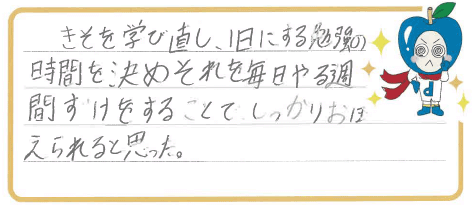 きそを学び直し、1日にする勉強の
時間を決めそれを毎日やる週
間ずけをすることで、しっかりおぼ
えられると思った。
d